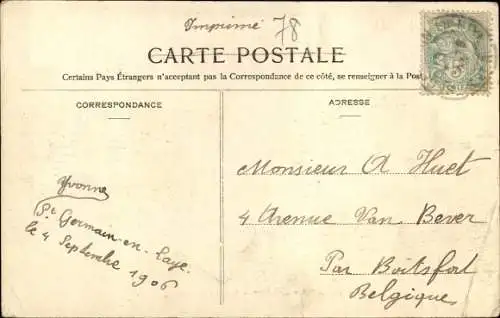 Imprimé 78
CARTE POSTALE
Certains Pays Étrangers n'acceptant pas la Correspondance de ce côté, se renseigner à la Post
CORRESPONDANCE
ADRESSE
Yvonne
St Germain-en-Laye.
le 4 Septembre 1906
Monsieur A Huet
4 Avenue Van Bever
Par Boitsfort
Belgique